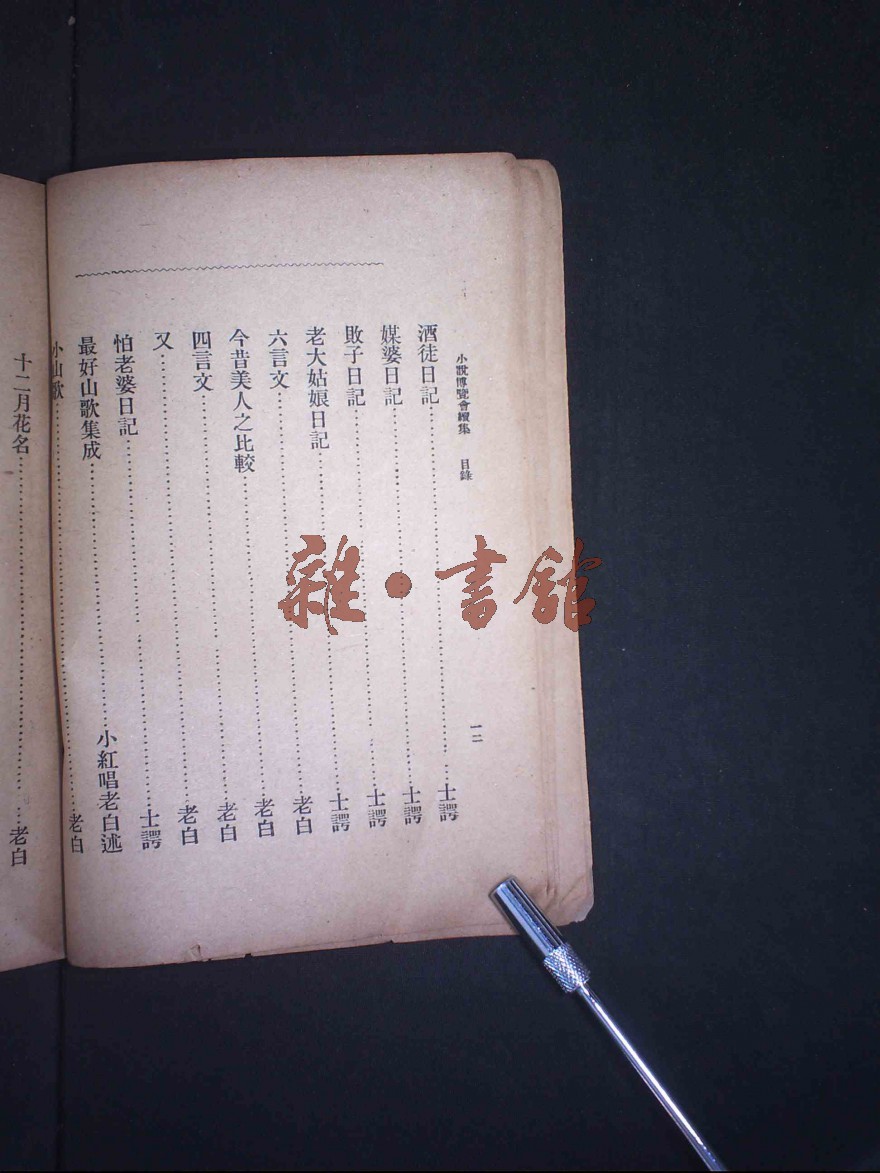 小說博覽會續集 目錄 一二
酒徒日記 士諤
媒婆日記 士諤
敗子日記 士諤
老大姑娘日記 士諤
六言文 老白
今昔美人之比較 老白
四言文 老白
又 老白
怕老婆日記 士諤
最好山歌集成 小紅唱老白述
小山歌 老白
十二月花名 老白
雜·書館